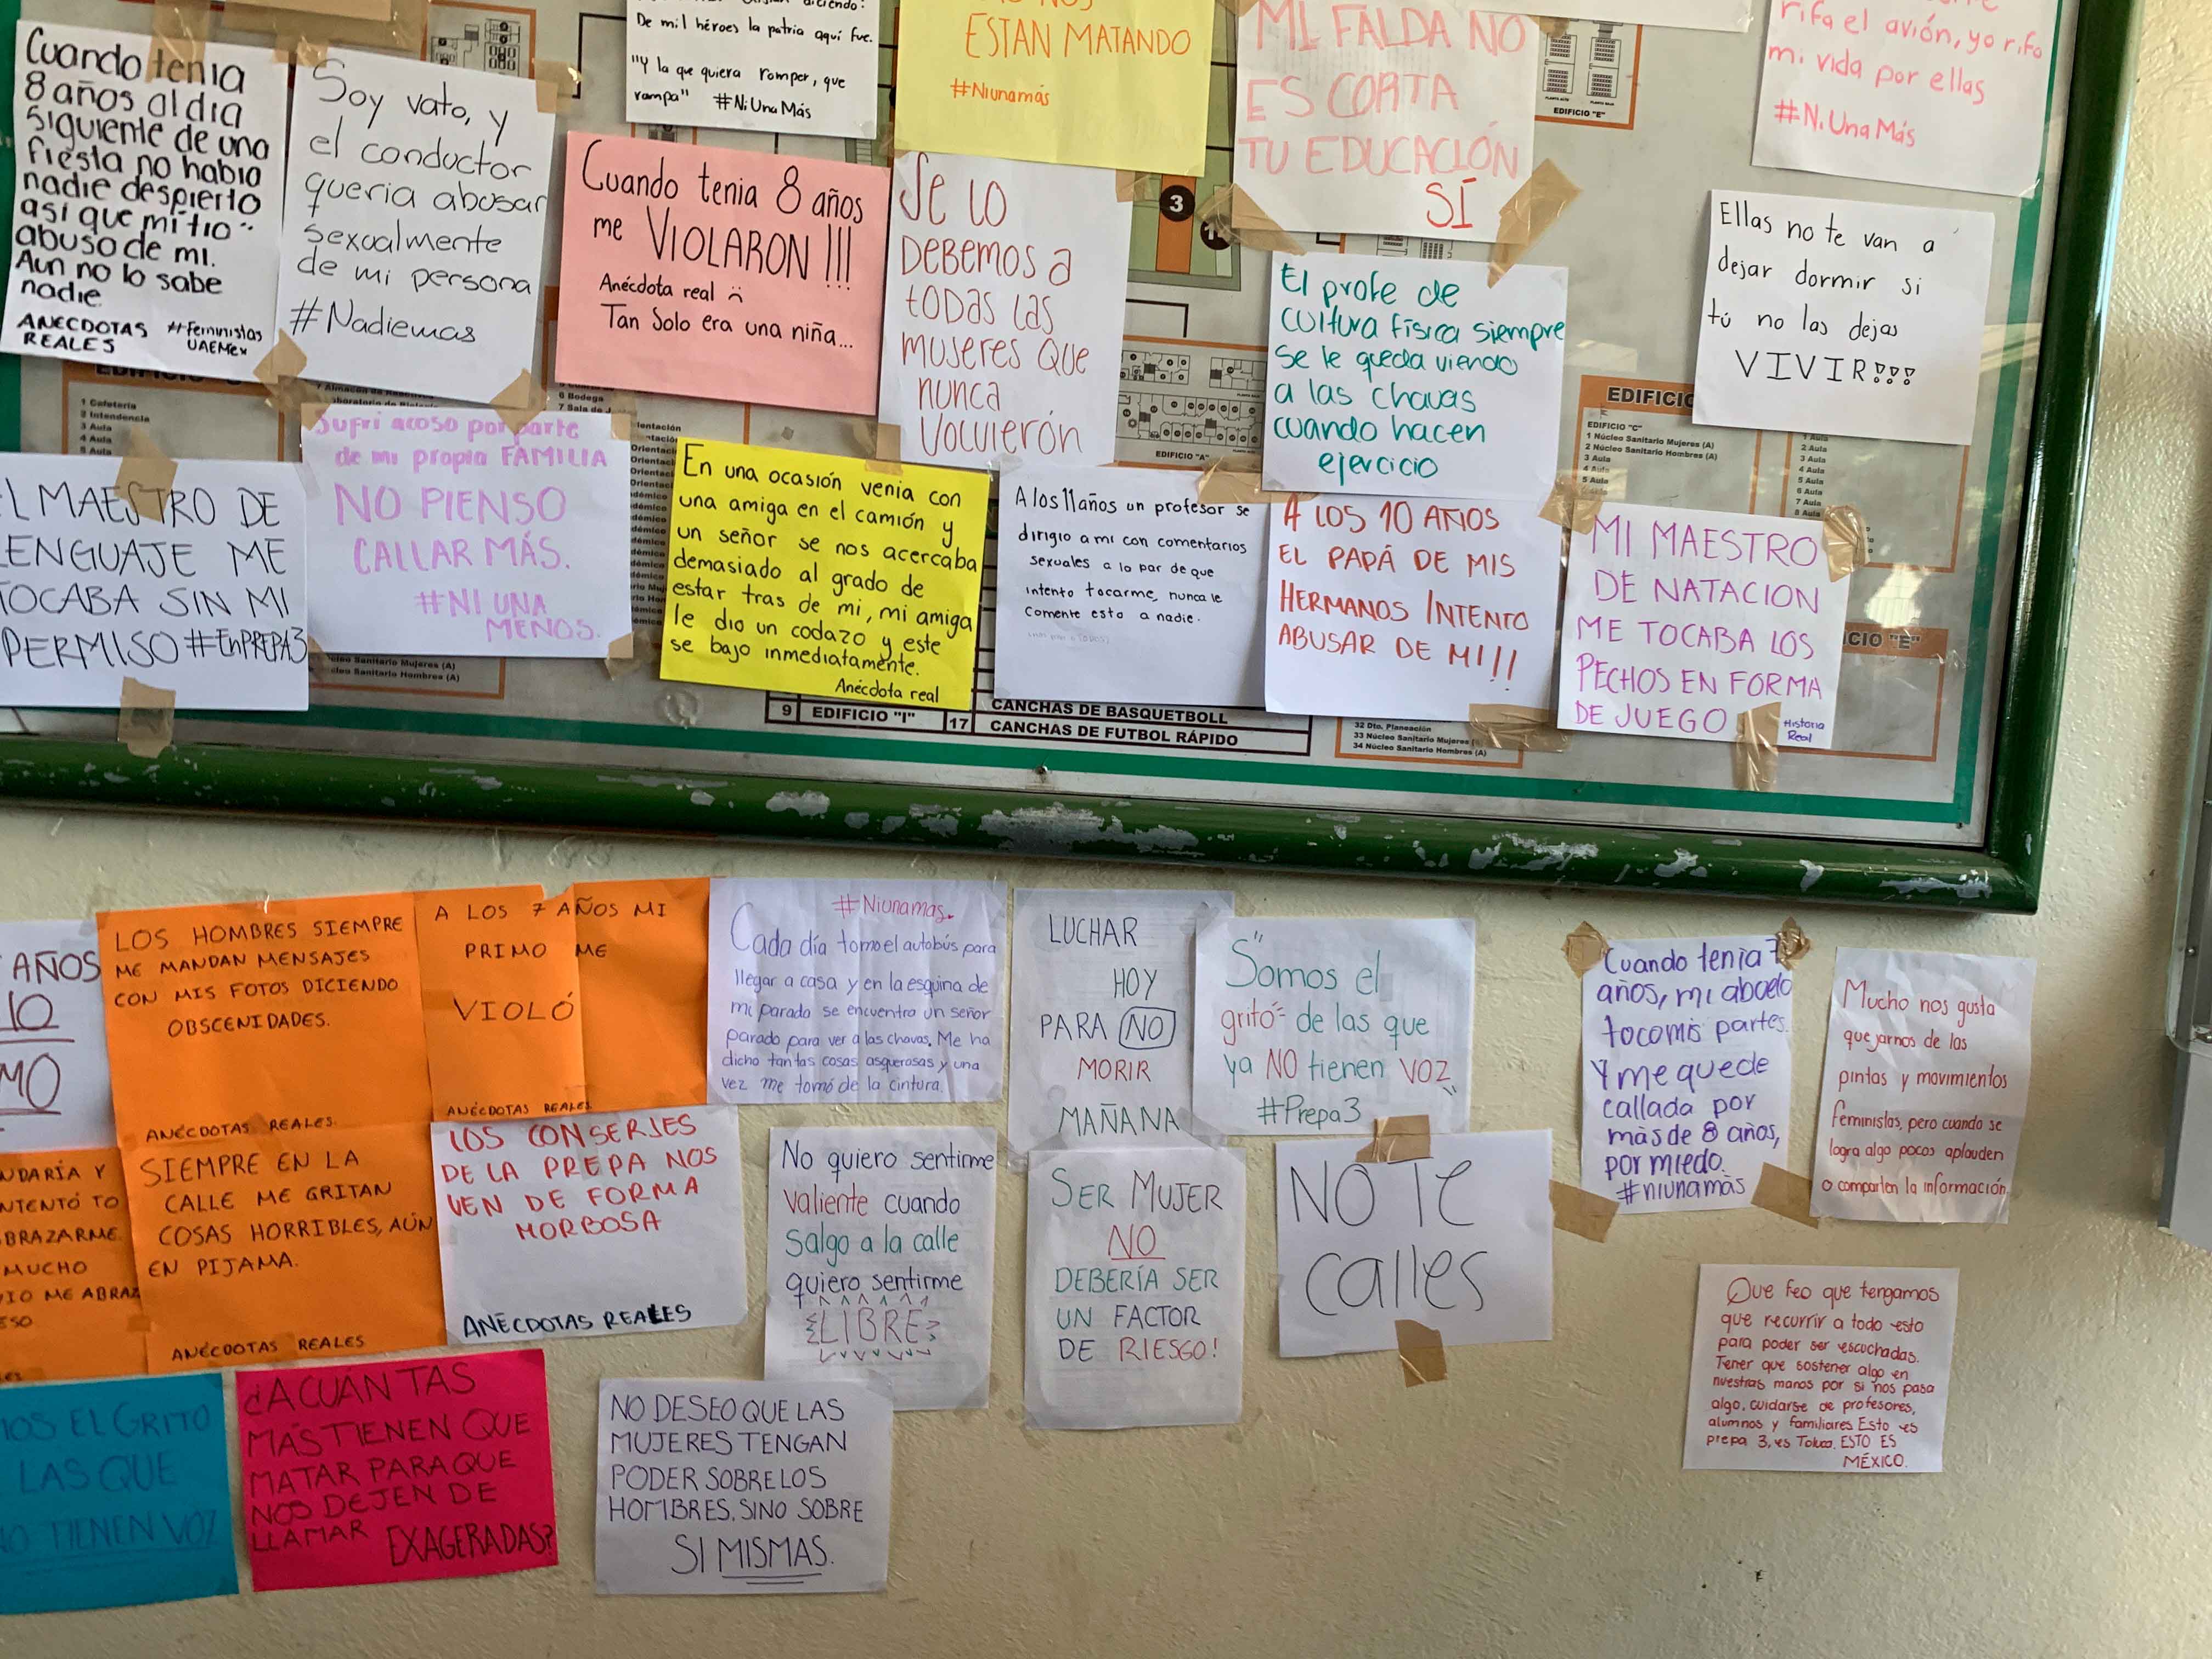 Cuando tenia
8 años al dia
siguiente de una
fiesta no habia
nadie despierto
asi que mi tio
abuso de mi.
Aun no lo sabe
nadie
ANECDOTAS
REALES
#Feministas
UAEMex
Soy vato, y
el conductor
queria abusar
sexualmente
de mi persona
#Nadiemas
diciendo:
De mil héroes la patria aquí fue.
"Y la que quiera romper, que
rompa" #NiUnaMás
Cuando tenia 8 años
me VIOLARON !!!
Anécdota real
Tan Solo era una niña...
NOS
ESTAN MATANDO
#Niunamás
Se lo
DEBEMOS a
todas las
mujeres que
nunca
volvieron
MI FALDA NO
ES CORTA
TU EDUCACIÓN
SÍ
rifa el avión, yo rifo
mi vida por ellas
#NiUnaMás
El profe de
cultura física siempre
se le queda viendo
a las chavas
cuando hacen
ejercicio
Ellas no te van a
dejar dormir si
tú no las dejas
VIVIR!!!
EL MAESTRO DE
LENGUAJE ME
TOCABA SIN MI
PERMISO #EnPREPA3
Sufri acoso por parte
de mi propia FAMILIA
NO PIENSO
CALLAR MÁS.
#NI UNA
MENOS.
En una ocasión venia con
una amiga en el camión y
un señor se nos acercaba
demasiado al grado de
estar tras de mi, mi amiga
le dio un codazo y este
se bajo inmediatamente.
Anécdota real
A los 11 años un profesor se
dirigio a mi con comentarios
sexuales a lo par de que
intento tocarme, nunca le
comente esto a nadie.
A LOS 10 AÑOS
EL PAPÁ DE MIS
HERMANOS INTENTO
ABUSAR DE MI!!
MI MAESTRO
DE NATACION
ME TOCABA LOS
PECHOS EN FORMA
DE JUEGO
Historia
Real
3
EDIFICIO "E"
EDIFICIO "A"
1 Cafeteria
2 Intendencia
3 Aula
4 Aula
5 Aula
6 Bodega
EDIFICIO "C"
1 Núcleo Sanitario Mujeres (A)
2 Núcleo Sanitario Hombres (A)
3 Aula
4 Aula
5 Aula
1 Aula
2 Aula
3 Aula
4 Aula
5 Aula
6 Aula
7 Aula
8 Aula
Sanitario Mujeres (A)
Sanitario Hombres (A)
9 EDIFICIO "I"
17
CANCHAS DE BASQUETBOLL
CANCHAS DE FUTBOL RÁPIDO
32 Dto. Planeación
33 Núcleo Sanitario Mujeres
34 Núcleo Sanitario Hombres (A)
AÑOS
LOS HOMBRES SIEMPRE
ME MANDAN MENSAJES
CON MIS FOTOS DICIENDO
OBSCENIDADES.
ANÉCDOTAS REALES.
A LOS 7 AÑOS MI
PRIMO ME
VIOLÓ
ANÉCDOTAS REALES
#Niunamas.
Cada día tomo el autobús para
llegar a casa y en la esquina de
mi parada se encuentra un señor
parado para ver a las chavas. Me ha
dicho tantas cosas asquerosas y una
vez me tomó de la cintura.
LUCHAR
HOY
PARA NO
MORIR
MAÑANA
"Somos el
grito" de las que
ya NO tienen VOZ"
#Prepa3
Cuando tenia 7
años, mi abuelo
toco mis partes.
Y me quede
callada por
màs de 8 años,
por miedo.
#niunamàs
Mucho nos gusta
quejarnos de las
pintas y movimientos
feministas, pero cuando se
logra algo pocos aplauden
o comparten la información
MUCHO
SIEMPRE EN LA
CALLE ME GRITAN
COSAS HORRIBLES, AÚN
EN PIJAMA.
ANÉCDOTAS REALES
LOS CONSERJES
DE LA PREPA NOS
VEN DE FORMA
MORBOSA
ANÉCDOTAS REALES
No quiero sentirme
valiente cuando
salgo a la calle
quiero sentirme
LIBRE
SER MUJER
NO
DEBERÍA SER
UN FACTOR
DE RIESGO!
NO Te
calles
Que feo que tengamos
que recurrir a todo esto
para poder ser escuchadas.
Tener que sostener algo en
nuestras manos por si nos pasa
algo, cuidarse de profesores,
alumnos y familiares Esto es
prepa 3, es Toluca. ESTO ES
MÉXICO.
EL GRITO
LAS QUE
NO TIENEN VOZ
¿A CUÁNTAS
MÁS TIENEN QUE
MATAR PARA QUE
NOS DEJEN DE
LLAMAR EXAGERADAS?
NO DESEO QUE LAS
MUJERES TENGAN
PODER SOBRE LOS
HOMBRES, SINO SOBRE
SI MISMAS.